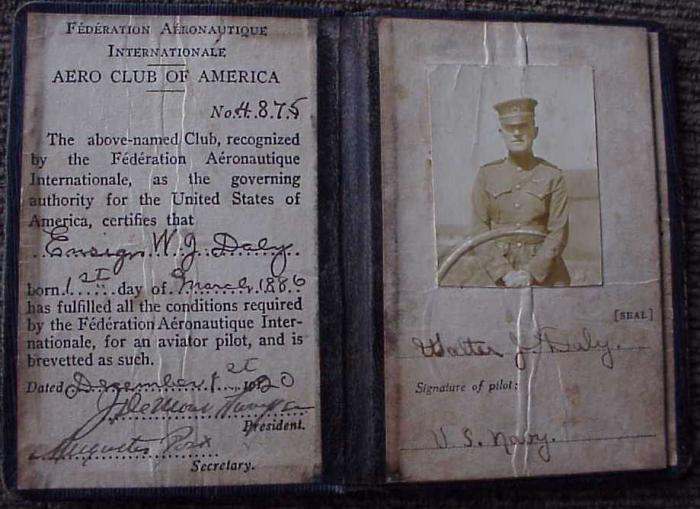 FÉDÉRATION AÉRONAUTIQUE
INTERNATIONALE
AERO CLUB OF AMERICA
No. 4.8.7.5
The above-named Club, recognized
by the Fédération Aéronautique
Internationale, as the governing
authority for the United States of
America, certifies that
Ensign W. J. Daly
born 1st day of March 1886
has fulfilled all the conditions required
by the Fédération Aéronautique Inter-
nationale, for an aviator pilot, and is
brevetted as such.
Dated December 1st 1920
President.
Augustus Post
Secretary.
[SEAL]
Walter J. Daly.
Signature of pilot:
U. S. Navy.